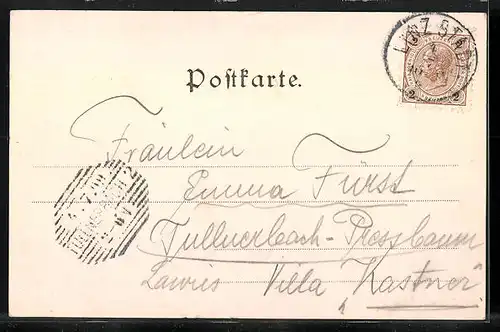 LINZ STADT
2 2
Postkarte.
Fräulein
Emma Fürst
Tullnerbach-Pressbaum
Lawies Villa „Kastner"